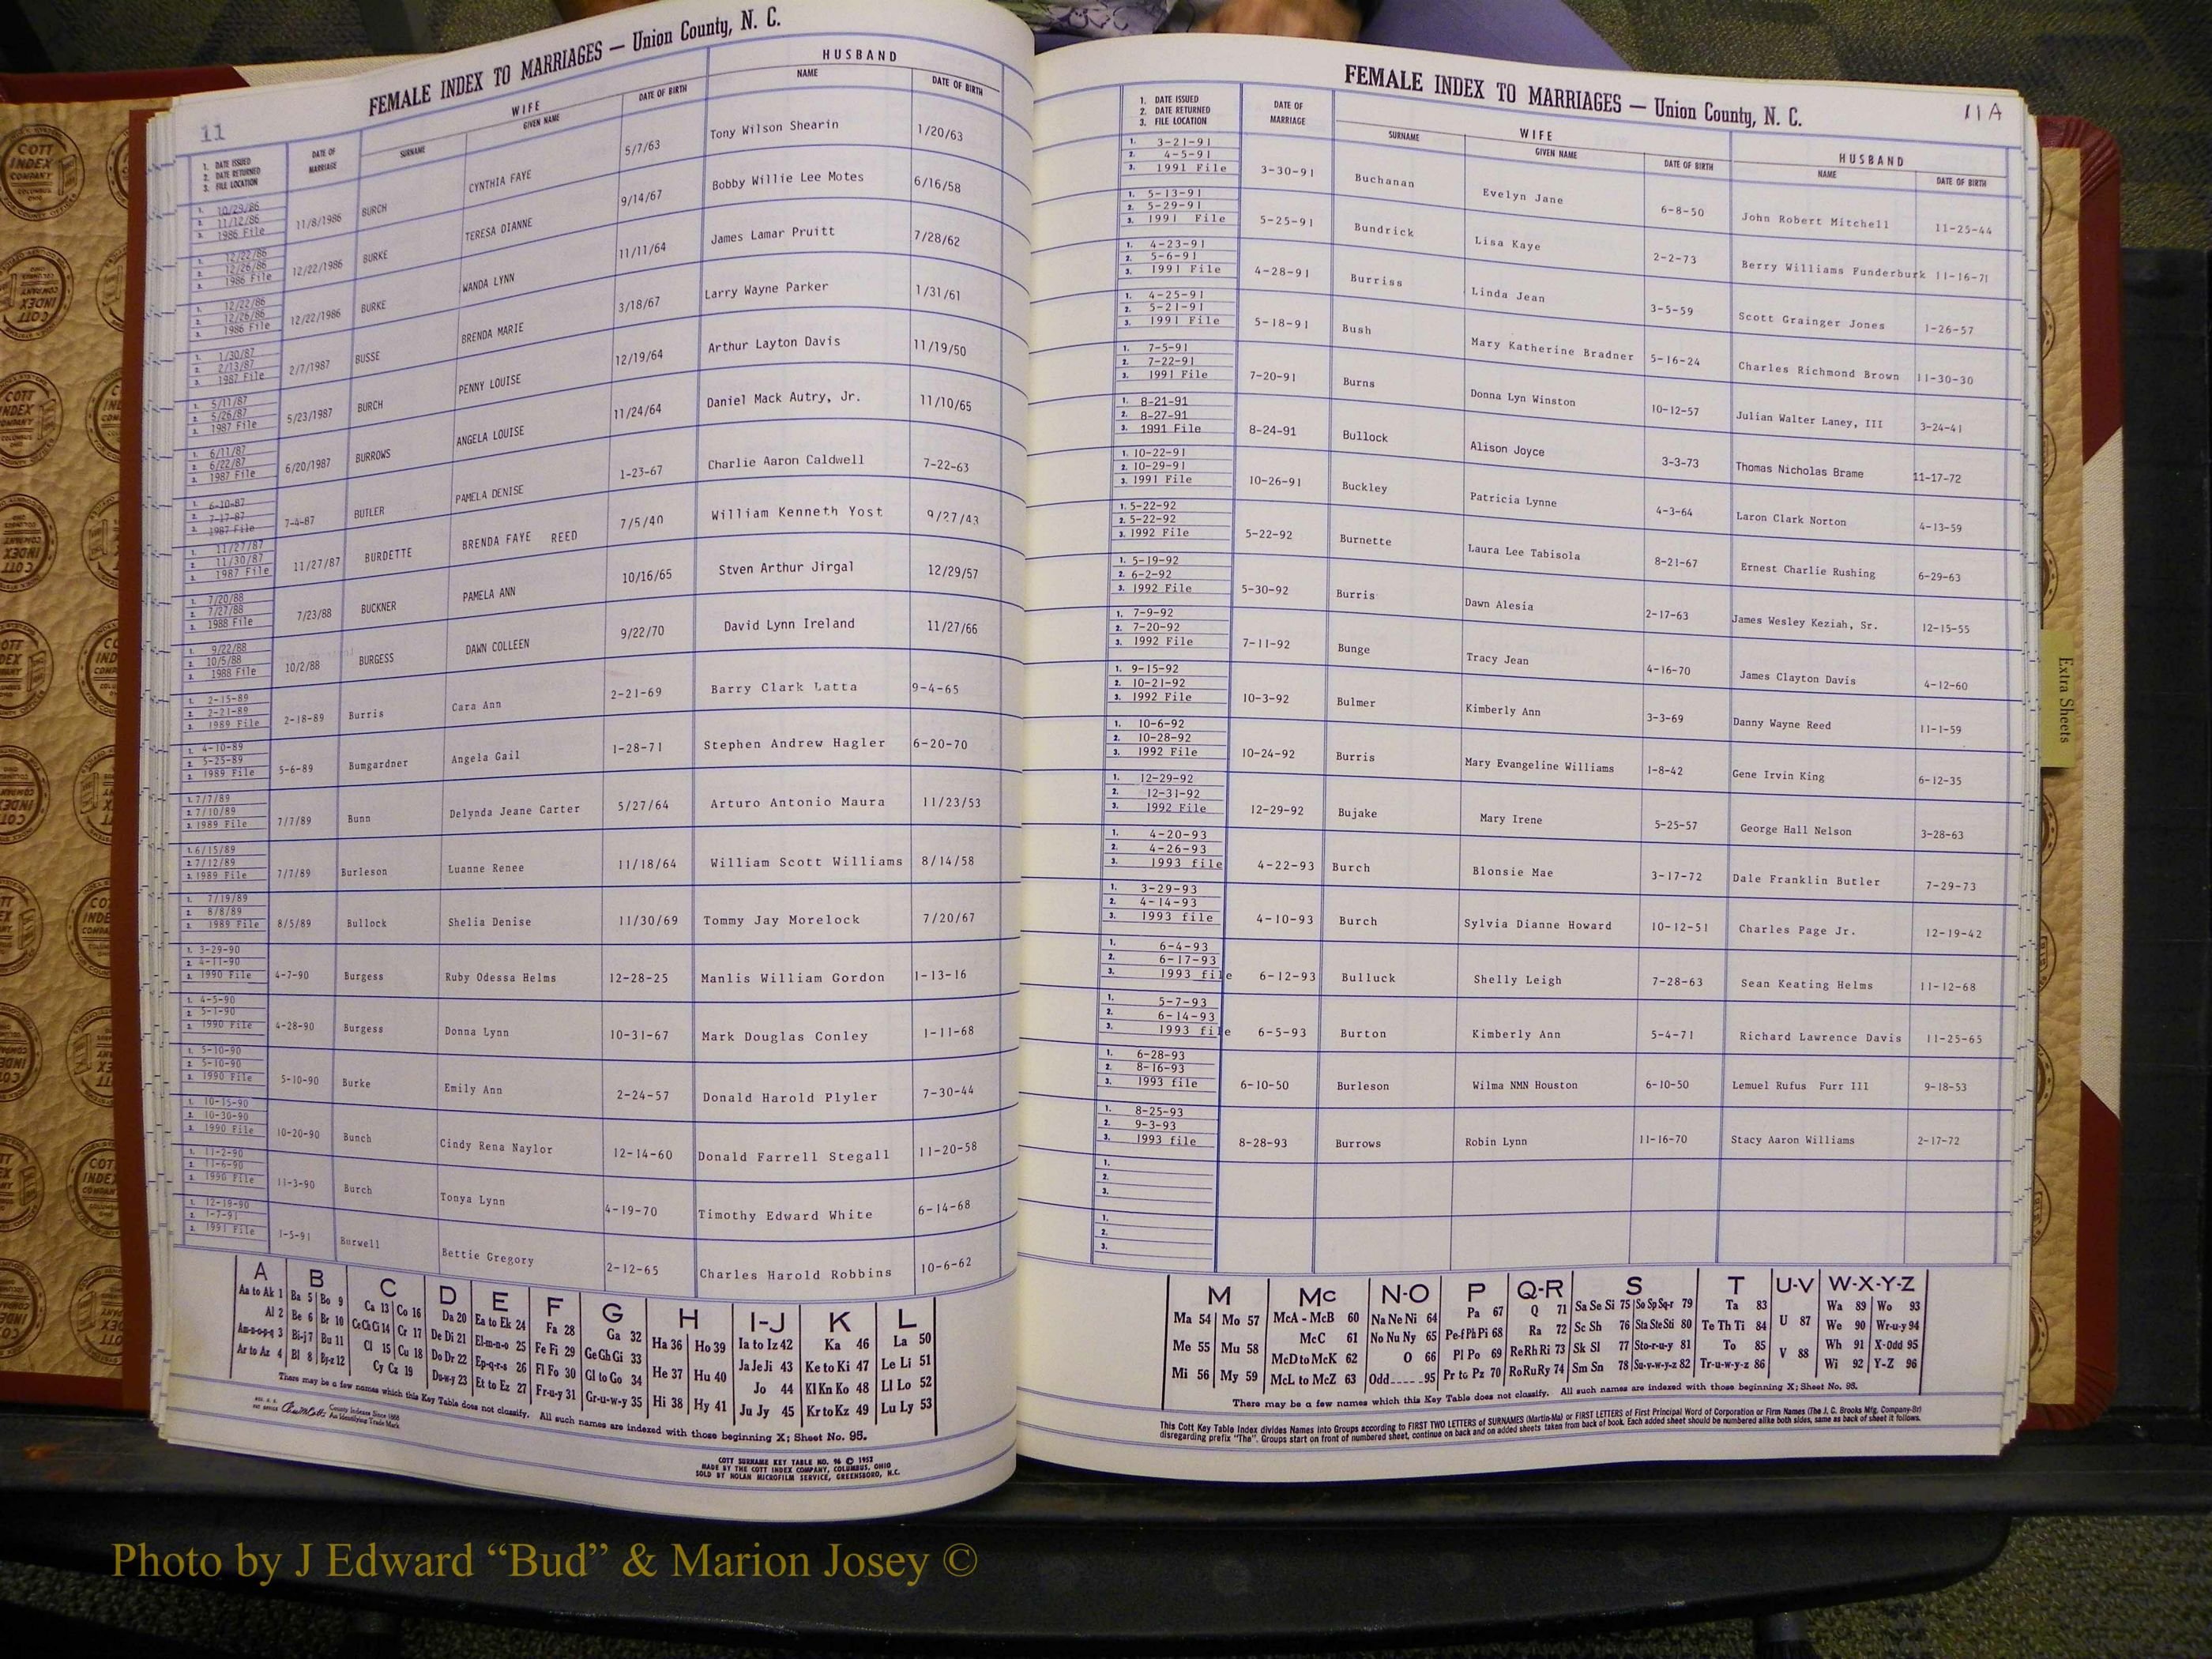 11
FEMALE INDEX TO MARRIAGES — Union County, N. C.
WIFE
HUSBAND
1. DATE ISSUED
2. DATE RETURNED
3. FILE LOCATION
DATE OF MARRIAGE
SURNAME
GIVEN NAME
DATE OF BIRTH
NAME
DATE OF BIRTH
1. 10/29/86 2. 11/12/86 3. 1986 File 11/8/1986 BURCH CYNTHIA FAYE 5/7/63 Tony Wilson Shearin 1/20/63
1. 12/22/86 2. 12/26/86 3. 1986 File 12/22/1986 BURKE TERESA DIANNE 9/14/67 Bobby Willie Lee Motes 6/16/58
1. 12/22/86 2. 12/26/86 3. 1986 File 12/22/1986 BURKE WANDA LYNN 11/11/64 James Lamar Pruitt 7/28/62
1. 1/30/87 2. 2/13/87 3. 1987 File 2/7/1987 BUSSE BRENDA MARIE 3/18/67 Larry Wayne Parker 1/31/61
1. 5/11/87 2. 5/26/87 3. 1987 File 5/23/1987 BURCH PENNY LOUISE 12/19/64 Arthur Layton Davis 11/19/50
1. 6/11/87 2. 6/22/87 3. 1987 File 6/20/1987 BURROWS ANGELA LOUISE 11/24/64 Daniel Mack Autry, Jr. 11/10/65
1. 6-10-87 2. 7-17-87 3. 1987 File 7-4-87 BUTLER PAMELA DENISE 1-23-67 Charlie Aaron Caldwell 7-22-63
1. 11/27/87 2. 11/30/87 3. 1987 File 11/27/87 BURDETTE BRENDA FAYE REED 7/5/40 William Kenneth Yost 9/27/43
1. 7/20/88 2. 7/27/88 3. 1988 File 7/23/88 BUCKNER PAMELA ANN 10/16/65 Stven Arthur Jirgal 12/29/57
1. 9/22/88 2. 10/5/88 3. 1988 File 10/2/88 BURGESS DAWN COLLEEN 9/22/70 David Lynn Ireland 11/27/66
1. 2-15-89 2. 2-21-89 3. 1989 File 2-18-89 Burris Cara Ann 2-21-69 Barry Clark Latta 9-4-65
1. 4-10-89 2. 5-25-89 3. 1989 File 5-6-89 Bumgardner Angela Gail 1-28-71 Stephen Andrew Hagler 6-20-70
1. 7/7/89 2. 7/10/89 3. 1989 File 7/7/89 Bunn Delynda Jeane Carter 5/27/64 Arturo Antonio Maura 11/23/53
1. 6/15/89 2. 7/12/89 3. 1989 File 7/7/89 Burleson Luanne Renee 11/18/64 William Scott Williams 8/14/58
1. 7/19/89 2. 8/8/89 3. 1989 File 8/5/89 Bullock Shelia Denise 11/30/69 Tommy Jay Morelock 7/20/67
1. 3-29-90 2. 4-11-90 3. 1990 File 4-7-90 Burgess Ruby Odessa Helms 12-28-25 Manlis William Gordon 1-13-16
1. 4-5-90 2. 5-1-90 3. 1990 File 4-28-90 Burgess Donna Lynn 10-31-67 Mark Douglas Conley 1-11-68
1. 5-10-90 2. 5-10-90 3. 1990 File 5-10-90 Burke Emily Ann 2-24-57 Donald Harold Plyler 7-30-44
1. 10-15-90 2. 10-30-90 3. 1990 File 10-20-90 Bunch Cindy Rena Naylor 12-14-60 Donald Farrell Stegall 11-20-58
1. 11-2-90 2. 11-6-90 3. 1990 File 11-3-90 Burch Tonya Lynn 4-19-70 Timothy Edward White 6-14-68
1. 12-19-90 2. 1-7-91 3. 1991 File 1-5-91 Burwell Bettie Gregory 2-12-65 Charles Harold Robbins 10-6-62
A B C D E F G H I-J K L
Aa to Ak 1 Ba 5 Bo 9 Ca 13 Co 16 Da 20 Ea to Ek 24 Fa 28 Ga 32 Ha 36 Ho 39 Ia to Iz 42 Ka 46 La 50
Al 2 Be 6 Br 10 Ce Ch Ci 14 Cr 17 De Di 21 El-m-n-o 25 Fe Fi 29 Ge Gh Gi 33 He 37 Hu 40 Ja Je Ji 43 Ke to Ki 47 Le Li 51
Am-n-o-p-q 3 Bi-j 7 Bu 11 Cl 15 Cu 18 Do Dr 22 Ep-q-r-s 26 Fl Fo 30 Gl to Go 34 Hi 38 Hy 41 Jo 44 Kl Kn Ko 48 Ll Lo 52
Ar to Az 4 Bl 8 By-z 12 Cy Cz 19 Du-w-y 23 Et to Ez 27 Fr-u-y 31 Gr-u-w-y 35 Ju Jy 45 Kr to Kz 49 Lu Ly 53
There may be a few names which this Key Table does not classify. All such names are indexed with those beginning X; Sheet No. 95.
County Indexes Since 1888
An Identifying Trade Mark
COTT SURNAME KEY TABLE NO. 96 © 1952
MADE BY THE COTT INDEX COMPANY, COLUMBUS, OHIO
SOLD BY NOLAN MICROFILM SERVICE, GREENSBORO, N.C.
FEMALE INDEX TO MARRIAGES — Union County, N. C.
11A
1. DATE ISSUED
2. DATE RETURNED
3. FILE LOCATION
DATE OF MARRIAGE
WIFE
SURNAME
GIVEN NAME
DATE OF BIRTH
HUSBAND
NAME
DATE OF BIRTH
1. 3-21-91 2. 4-5-91 3. 1991 File 3-30-91 Buchanan Evelyn Jane 6-8-50 John Robert Mitchell 11-25-44
1. 5-13-91 2. 5-29-91 3. 1991 File 5-25-91 Bundrick Lisa Kaye 2-2-73 Berry Williams Funderburk 11-16-71
1. 4-23-91 2. 5-6-91 3. 1991 File 4-28-91 Burriss Linda Jean 3-5-59 Scott Grainger Jones 1-26-57
1. 4-25-91 2. 5-21-91 3. 1991 File 5-18-91 Bush Mary Katherine Bradner 5-16-24 Charles Richmond Brown 11-30-30
1. 7-5-91 2. 7-22-91 3. 1991 File 7-20-91 Burns Donna Lyn Winston 10-12-57 Julian Walter Laney, III 3-24-41
1. 8-21-91 2. 8-27-91 3. 1991 File 8-24-91 Bullock Alison Joyce 3-3-73 Thomas Nicholas Brame 11-17-72
1. 10-22-91 2. 10-29-91 3. 1991 File 10-26-91 Buckley Patricia Lynne 4-3-64 Laron Clark Norton 4-13-59
1. 5-22-92 2. 5-22-92 3. 1992 File 5-22-92 Burnette Laura Lee Tabisola 8-21-67 Ernest Charlie Rushing 6-29-63
1. 5-19-92 2. 6-2-92 3. 1992 File 5-30-92 Burris Dawn Alesia 2-17-63 James Wesley Keziah, Sr. 12-15-55
1. 7-9-92 2. 7-20-92 3. 1992 File 7-11-92 Bunge Tracy Jean 4-16-70 James Clayton Davis 4-12-60
1. 9-15-92 2. 10-21-92 3. 1992 File 10-3-92 Bulmer Kimberly Ann 3-3-69 Danny Wayne Reed 11-1-59
1. 10-6-92 2. 10-28-92 3. 1992 File 10-24-92 Burris Mary Evangeline Williams 1-8-42 Gene Irvin King 6-12-35
1. 12-29-92 2. 12-31-92 3. 1992 File 12-29-92 Bujake Mary Irene 5-25-57 George Hall Nelson 3-28-63
1. 4-20-93 2. 4-26-93 3. 1993 file 4-22-93 Burch Blonsie Mae 3-17-72 Dale Franklin Butler 7-29-73
1. 3-29-93 2. 4-14-93 3. 1993 file 4-10-93 Burch Sylvia Dianne Howard 10-12-51 Charles Page Jr. 12-19-42
1. 6-4-93 2. 6-17-93 3. 1993 file 6-12-93 Bulluck Shelly Leigh 7-28-63 Sean Keating Helms 11-12-68
1. 5-7-93 2. 6-14-93 3. 1993 file 6-5-93 Burton Kimberly Ann 5-4-71 Richard Lawrence Davis 11-25-65
1. 6-28-93 2. 8-16-93 3. 1993 file 6-10-50 Burleson Wilma NMN Houston 6-10-50 Lemuel Rufus Furr III 9-18-53
1. 8-25-93 2. 9-3-93 3. 1993 file 8-28-93 Burrows Robin Lynn 11-16-70 Stacy Aaron Williams 2-17-72
1.
2.
3.
1.
2.
3.
M Mc N-O P Q-R S T U-V W-X-Y-Z
Ma 54 Mo 57 McA - McB 60 Na Ne Ni 64 Pa 67 Q 71 Sa Se Si 75 So Sp Sq-r 79 Ta 83 U 87 Wa 89 Wo 93
Me 55 Mu 58 McC 61 No Nu Ny 65 Pe-f Ph Pi 68 Ra 72 Sc Sh 76 Sta Ste Sti 80 Te Th Ti 84 V 88 We 90 Wr-u-y 94
Mi 56 My 59 McD to McK 62 O 66 Pl Po 69 Re Rh Ri 73 Sk Sl 77 Sto-r-u-y 81 To 85 Wh 91 X-Odd 95
McL to McZ 63 Odd 95 Pr to Pz 70 Ro Ru Ry 74 Sm Sn 78 Su-v-w-y-z 82 Tr-u-w-y-z 86 Wi 92 Y-Z 96
There may be a few names which this Key Table does not classify. All such names are indexed with those beginning X; Sheet No. 95.
This Cott Key Table Index divides Names into Groups according to FIRST TWO LETTERS of SURNAMES (Martin-Ma) or FIRST LETTERS of First Principal Word of Corporation or Firm Names (The J. C. Brooks Mfg. Company-Br)
disregarding prefix "The". Groups start on front of numbered sheet, continue on back and on added sheets taken from back of book. Each added sheet should be numbered alike both sides, same as back of sheet it follows.
Extra Sheets
COTT INDEX COMPANY
Photo by J Edward “Bud” & Marion Josey ©